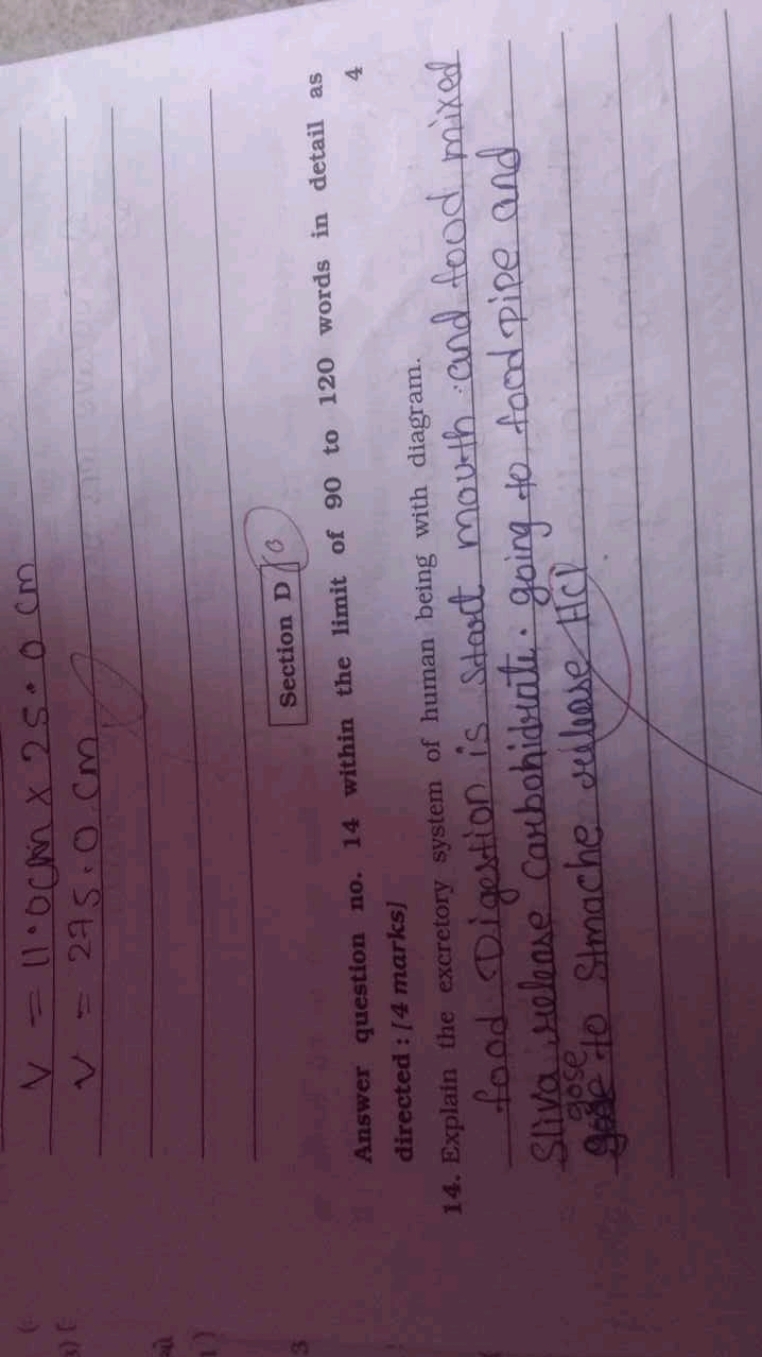 V = 11.0 cm x 25.0 cm
V = 275.0 cm
Section D
Answer question no. 14 within the limit of 90 to 120 words in detail as
directed : [4 marks] 4
14. Explain the excretory system of human being with diagram.
food Digestion is start mouth and food mixed
Sliva release carbohidrate. going to food pipe and
gose
to Stmache release Hcl
3